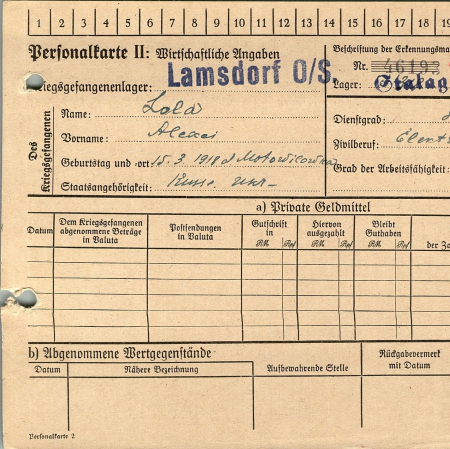 1 2 3 4 5 6 7 8 9 10 11 12 13 14 15 16 17 18 19
Personalkarte II: Wirtschaftliche Angaben
Beschriftung der Erkennungsma
Kriegsgefangenenlager: Lamsdorf O/S.
Nr. 46192
Lager: Stalag
Des Kriegsgefangenen
Name: Zola
Vorname: Alexei
Geburtstag und -ort: 15.3.1918 Motowilowka
Staatsangehörigkeit: Russ. ukr.
Dienstgrad:
Zivilberuf: Elektr
Grad der Arbeitsfähigkeit:
a) Private Geldmittel
Datum
Dem Kriegsgefangenen abgenommene Beträge in Valuta
Postsendungen in Valuta
Gutschrift in
RM Rpf
Hiervon ausgezahlt
RM Rpf
Bleibt Guthaben
RM Rpf
der Za
b) Abgenommene Wertgegenstände
Datum
Nähere Bezeichnung
Aufbewahrende Stelle
Rückgabevermerk mit Datum
Personalkarte 2